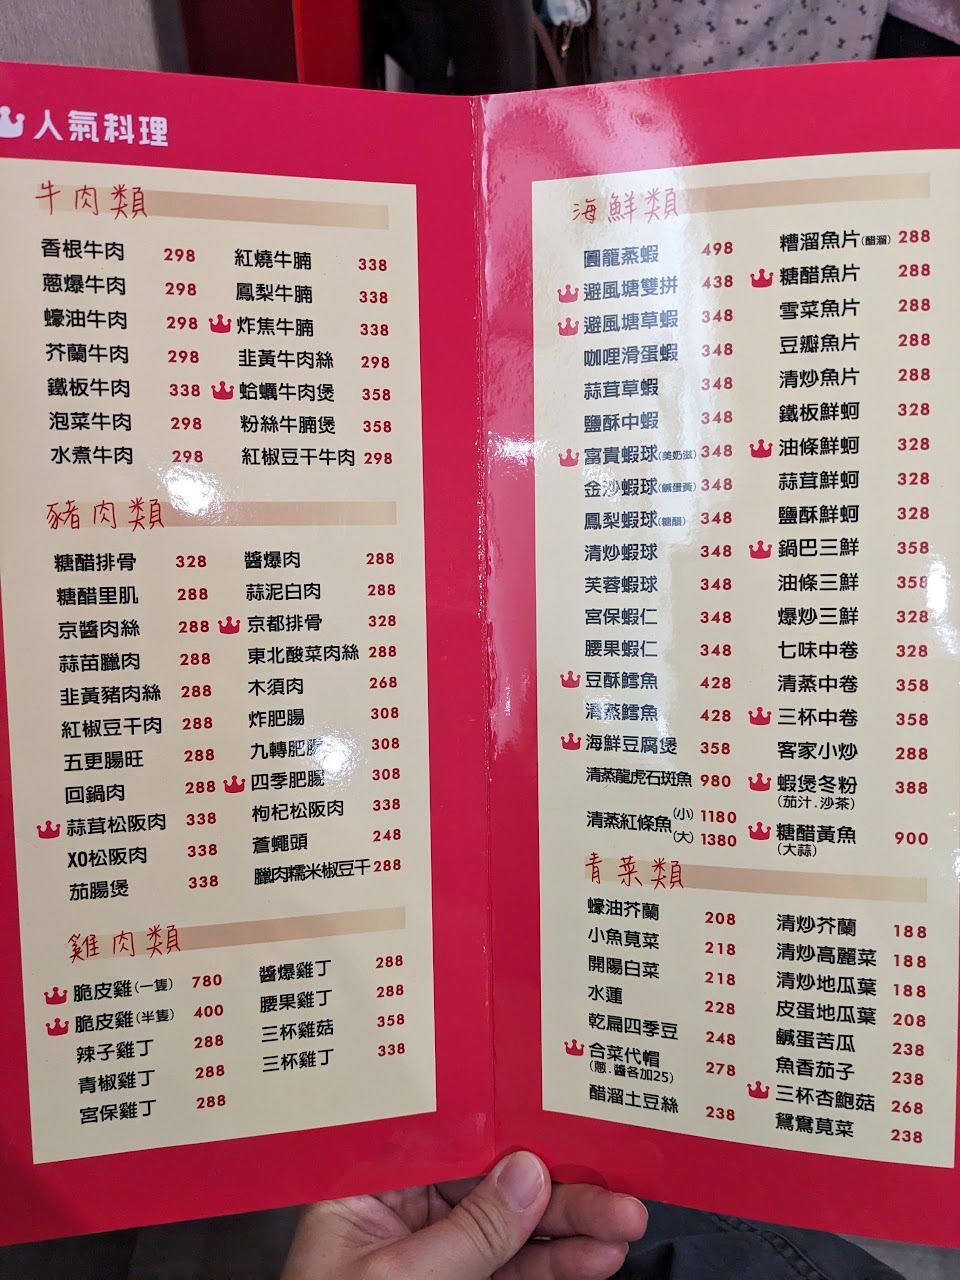 人氣料理
牛肉類
香根牛肉 298
蔥爆牛肉 298
蠔油牛肉 298
芥蘭牛肉 298
鐵板牛肉 338
泡菜牛肉 298
水煮牛肉 298
紅燒牛腩 338
鳳梨牛腩 338
炸焦牛腩 338
韭黃牛肉絲 298
蛤蠣牛肉煲 358
粉絲牛腩煲 358
紅椒豆干牛肉 298
豬肉類
糖醋排骨 328
糖醋里肌 288
京醬肉絲 288
蒜苗臘肉 288
韭黃豬肉絲 288
紅椒豆干肉 288
五更腸旺 288
回鍋肉 288
蒜茸松阪肉 338
XO松阪肉 338
茄腸煲 338
醬爆肉 288
蒜泥白肉 288
京都排骨 328
東北酸菜肉絲 288
木須肉 268
炸肥腸 308
九轉肥腸 308
四季肥腸 308
枸杞松阪肉 338
蒼蠅頭 248
臘肉糯米椒豆干 288
雞肉類
脆皮雞(一隻) 780
脆皮雞(半隻) 400
辣子雞丁 288
青椒雞丁 288
宮保雞丁 288
醬爆雞丁 288
腰果雞丁 288
三杯雞菇 358
三杯雞丁 338
海鮮類
圓籠蒸蝦 498
避風塘雙拼 438
避風塘草蝦 348
咖哩滑蛋蝦 348
蒜茸草蝦 348
鹽酥中蝦 348
富貴蝦球(美奶滋) 348
金沙蝦球(鹹蛋黃) 348
鳳梨蝦球(糖醋) 348
清炒蝦球 348
芙蓉蝦球 348
宮保蝦仁 348
腰果蝦仁 348
豆酥鱈魚 428
清蒸鱈魚 428
海鮮豆腐煲 358
清蒸龍虎石斑魚 980
清蒸紅條魚 (小) 1180
(大) 1380
糟溜魚片(醋溜) 288
糖醋魚片 288
雪菜魚片 288
豆瓣魚片 288
清炒魚片 288
鐵板鮮蚵 328
油條鮮蚵 328
蒜茸鮮蚵 328
鹽酥鮮蚵 328
鍋巴三鮮 358
油條三鮮 358
爆炒三鮮 328
七味中卷 328
清蒸中卷 358
三杯中卷 358
客家小炒 288
蝦煲冬粉 388
(茄汁.沙茶)
糖醋黃魚 900
(大蒜)
青菜類
蠔油芥蘭 208
小魚莧菜 218
開陽白菜 218
水蓮 228
乾扁四季豆 248
合菜代帽 278
(蔥.醬各加25)
醋溜土豆絲 238
清炒芥蘭 188
清炒高麗菜 188
清炒地瓜葉 188
皮蛋地瓜葉 208
鹹蛋苦瓜 238
魚香茄子 238
三杯杏鮑菇 268
鴛鴦莧菜 238